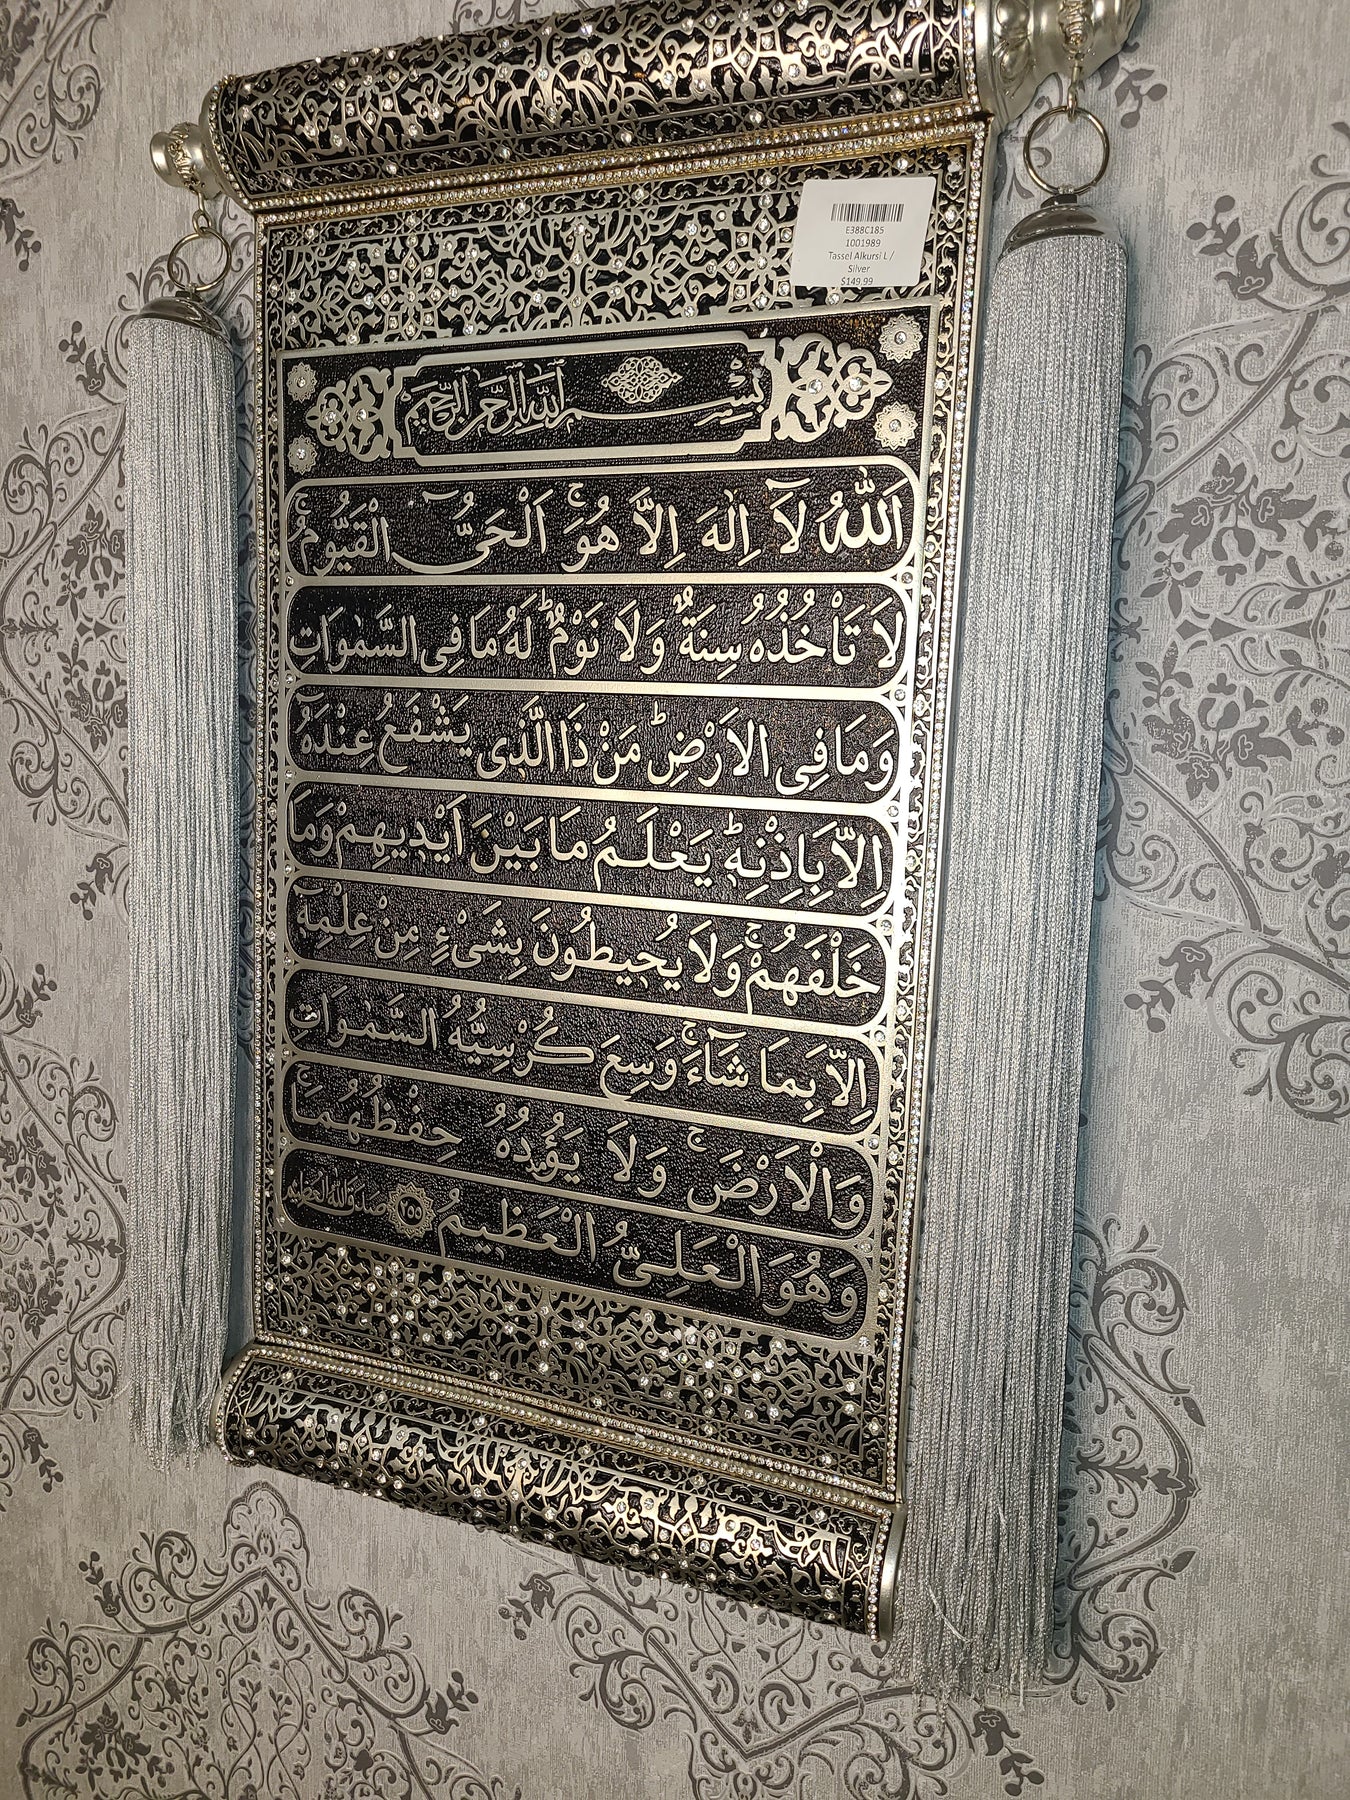 E388C185
1001989
Tassel Alkursi L /
Silver
$149.99
بِسْمِ اللّٰهِ الرَّحْمٰنِ الرَّحِيمِ
اَللّٰهُ لَآ اِلٰهَ اِلَّا هُوَۚ اَلْحَيُّ الْقَيُّومُۚ
لَا تَأْخُذُهُ سِنَةٌ وَلَا نَوْمٌۜ لَهُ مَا فِي السَّمٰوَاتِ
وَمَا فِي الْاَرْضِۜ مَنْ ذَا الَّذِي يَشْفَعُ عِنْدَهُٓ
اِلَّا بِاِذْنِه۪ۜ يَعْلَمُ مَا بَيْنَ اَيْد۪يهِمْ وَمَا
خَلْفَهُمْۚ وَلَا يُح۪يطُونَ بِشَيْءٍ مِنْ عِلْمِه۪ٓ
اِلَّا بِمَا شَٓاءَۚ وَسِعَ كُرْسِيُّهُ السَّمٰوَاتِ
وَالْاَرْضَۚ وَلَا يَؤُ۫دُهُ حِفْظُهُمَاۚ
وَهُوَ الْعَلِيُّ الْعَظ۪يمُ ٢٥٥ صدق الله العظيم